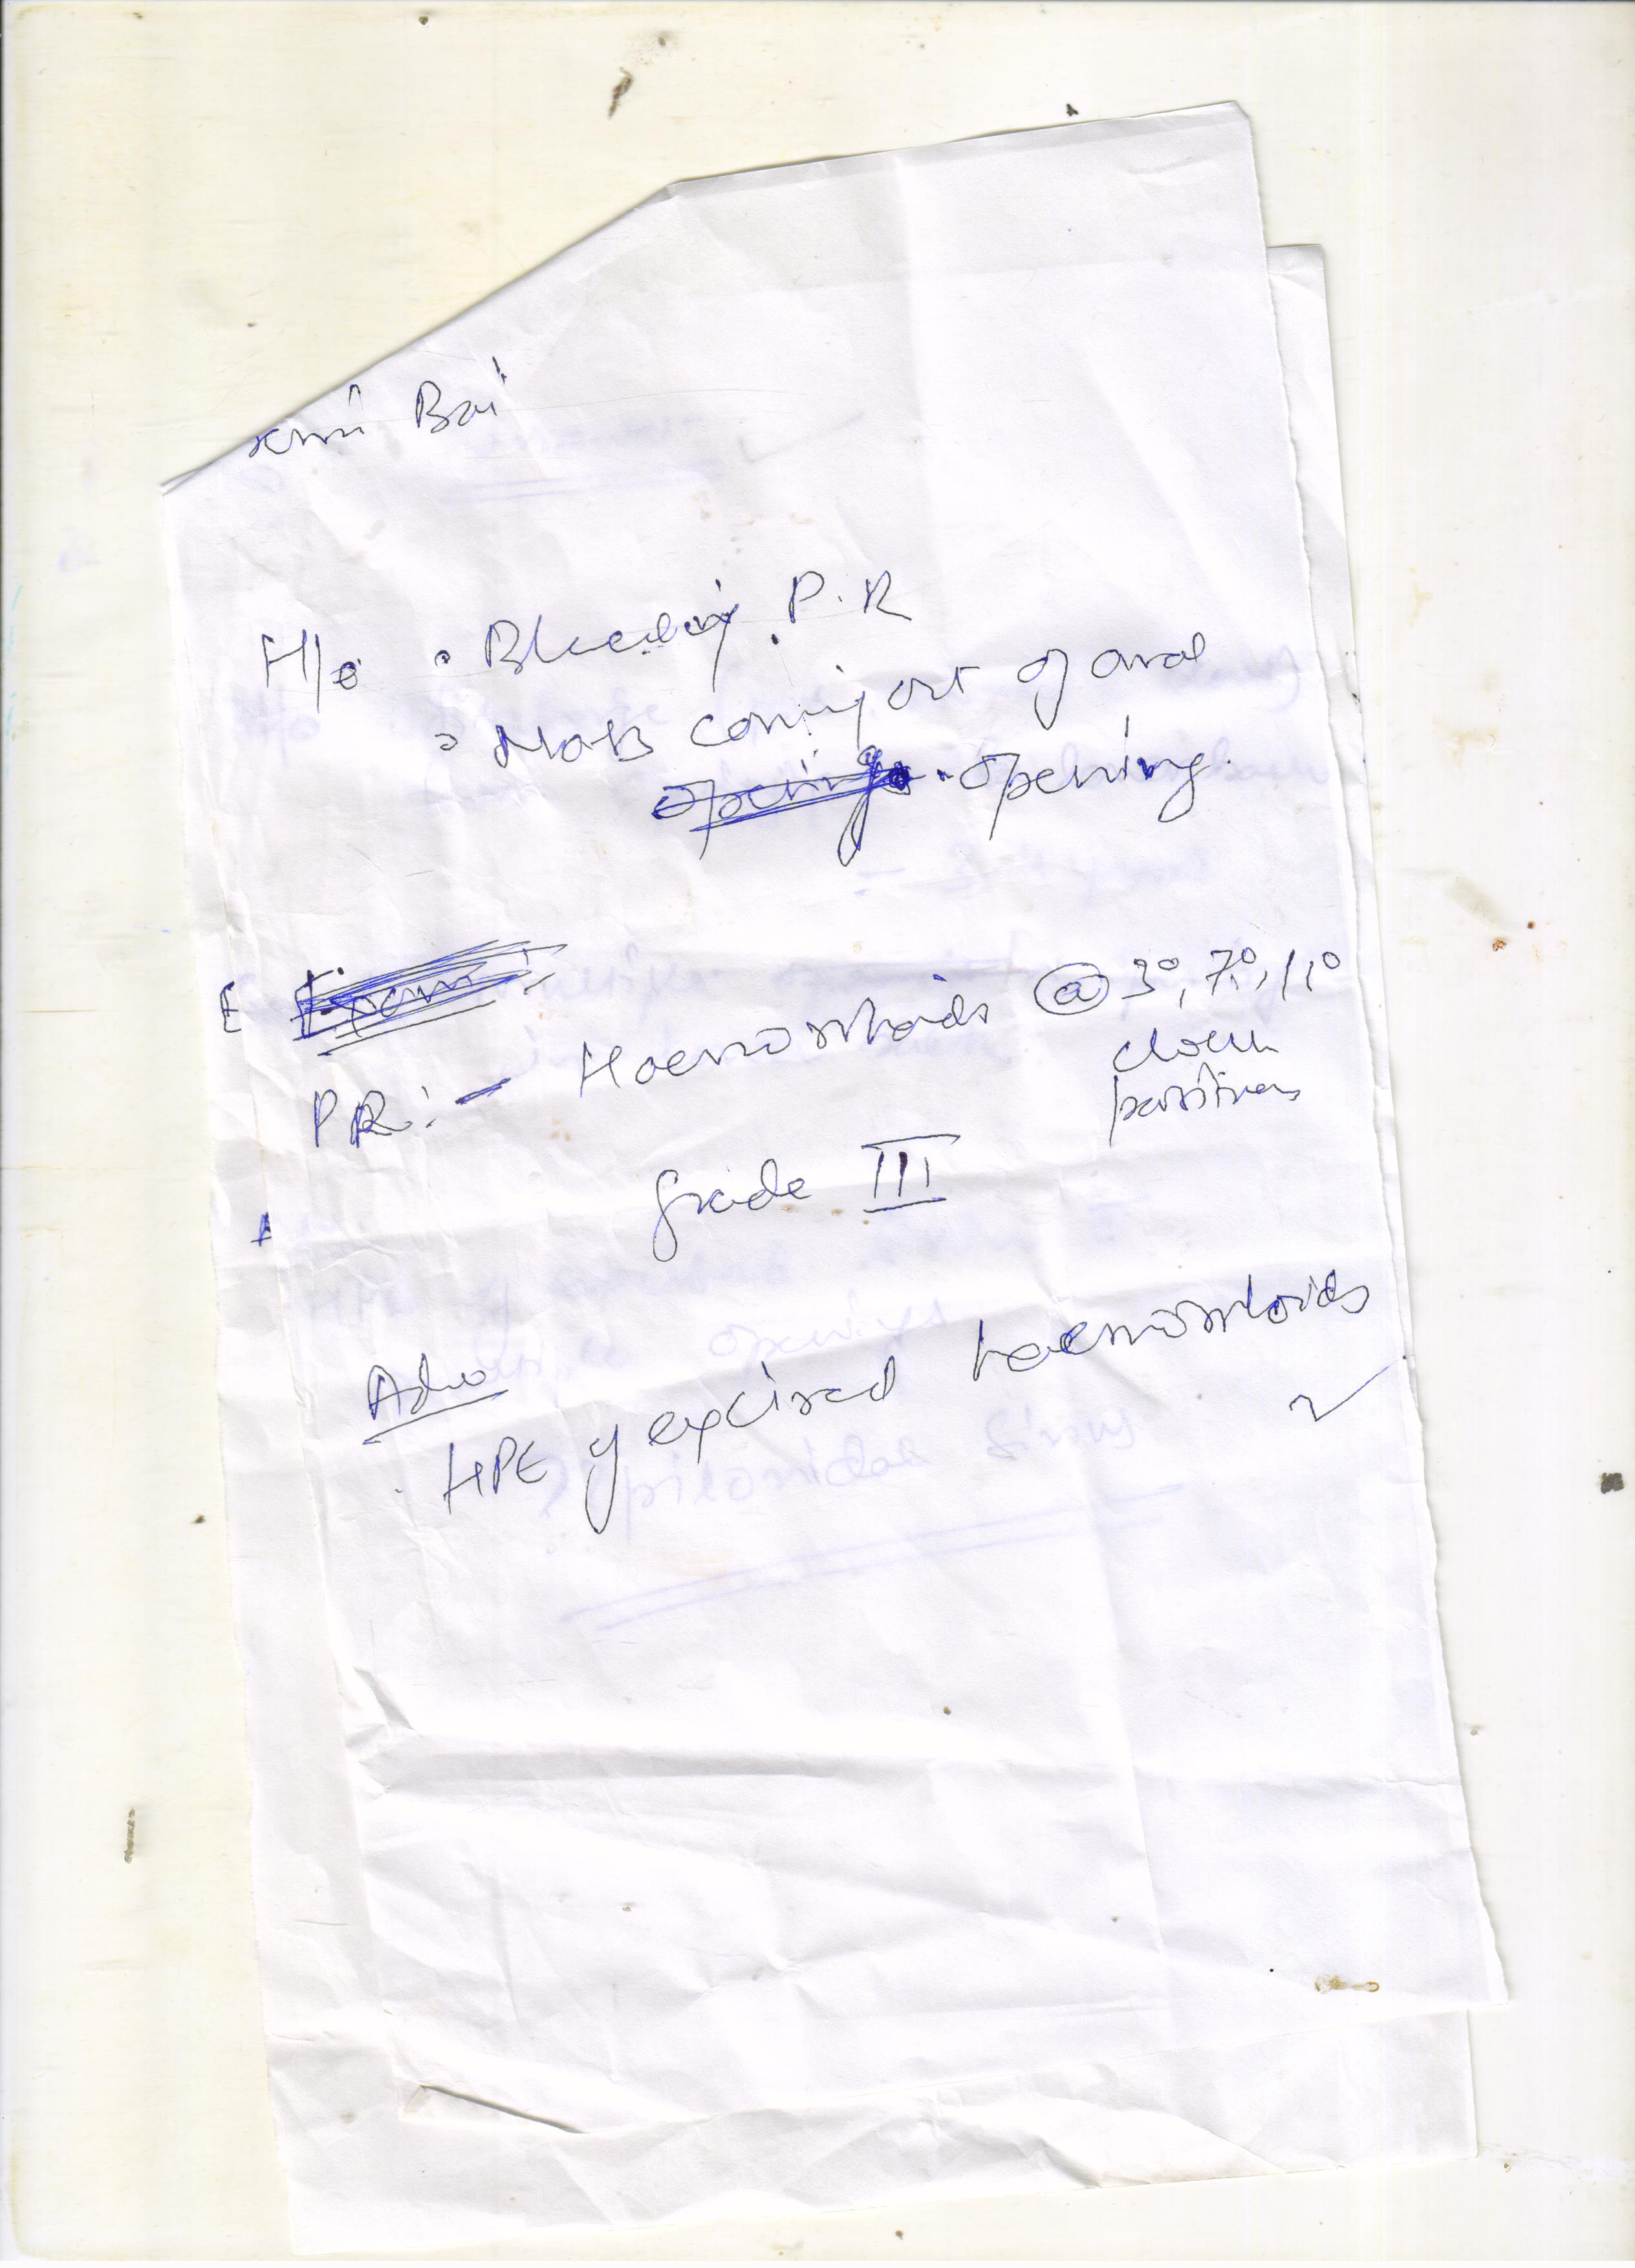 Bai
H/o • Bleeding P.R
• Mass coming out of anal
opening. opening.
E Exam:
PR:- Haemorrhoids @ 3°, 7°, 11°
clock
positions
Grade III
A
Adv
HPE of excised haemorrhoids